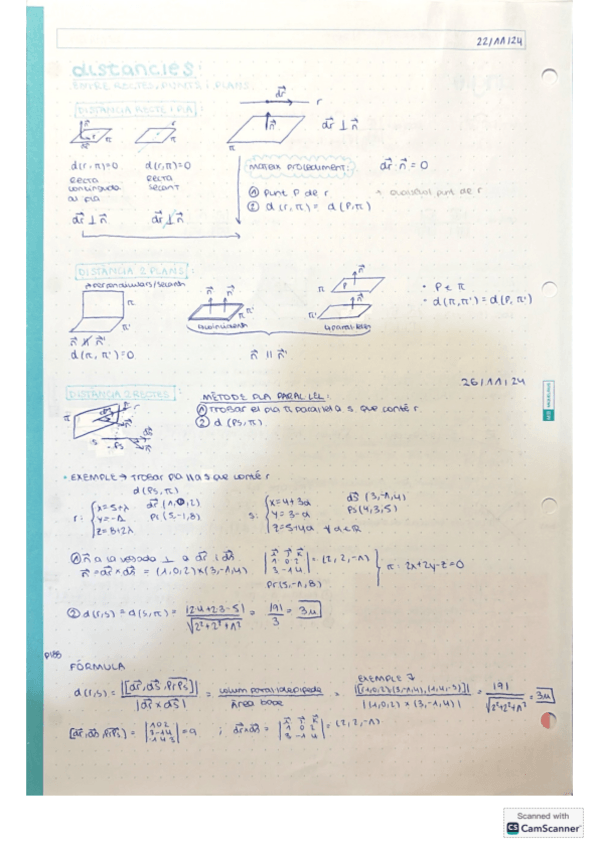 22/11/24
distàncies:
ENTRE RECTES, PUNTS I PLANS
DISTÀNCIA RECTE I PLA:
d(r,π)=0
recta
continguda
al pla
dr ⊥ n
d(r,π)=0
recta
secant
dr ⊥̸ n
dr
r
n
π
dr ⊥ n
dr · n = 0
Mateix procediment:
① Punt P de r
② d(r,π) = d(P,π)
DISTÀNCIA 2 PLANS:
π
π'
n ∦ n'
d(π, π')=0
n || n'
• P ∈ π
• d(π,π') = d(P, π')
26/11/24
DISTÀNCIA 2 RECTES:
MÈTODE PLA PARAL·LEL:
① Trobar el pla π paral·lel a s que conté r.
② d(Ps,π).
• EXEMPLE → trobar pla || a s que conté r
d(Ps,π)
r: x=5+λ
y=-1
z=8+2λ
dr (1,0,2)
Pr(5,-1,8)
s: x=4+3α
y=3-α
z=5+4α ∀α∈R
ds (3,-1,4)
Ps(4,3,5)
① n a la vegada ⊥ a dr i ds
n = dr × ds = (1,0,2)×(3,-1,4)
| i j k |
| 1 0 2 |
| 3 -1 4 | = (2,2,-1)
Pr(5,-1,8)
π: 2x+2y-z=0
② d(r,s) = d(s,π) = |2·4+2·3-5| / √2²+2²+1² = |9| / 3 = 3u
FÓRMULA
d(r,s) = |[dr,ds,PrPs]| / |dr×ds| = volum paral·lelepípede / àrea base =
EXEMPLE 7
|[(1,0,2),(3,-1,4),(1,4,-3)]| / |(1,0,2)×(3,-1,4)| = |9| / √2²+2²+1² = 3u
[dr,ds,PrPs] = | 1 0 2 |
| 3 -1 4 |
| -1 4 3 | = 9 ; dr×ds = | i j k |
| 1 0 2 |
| 3 -1 4 | = (2,2,-1)
Scanned with
CS CamScanner